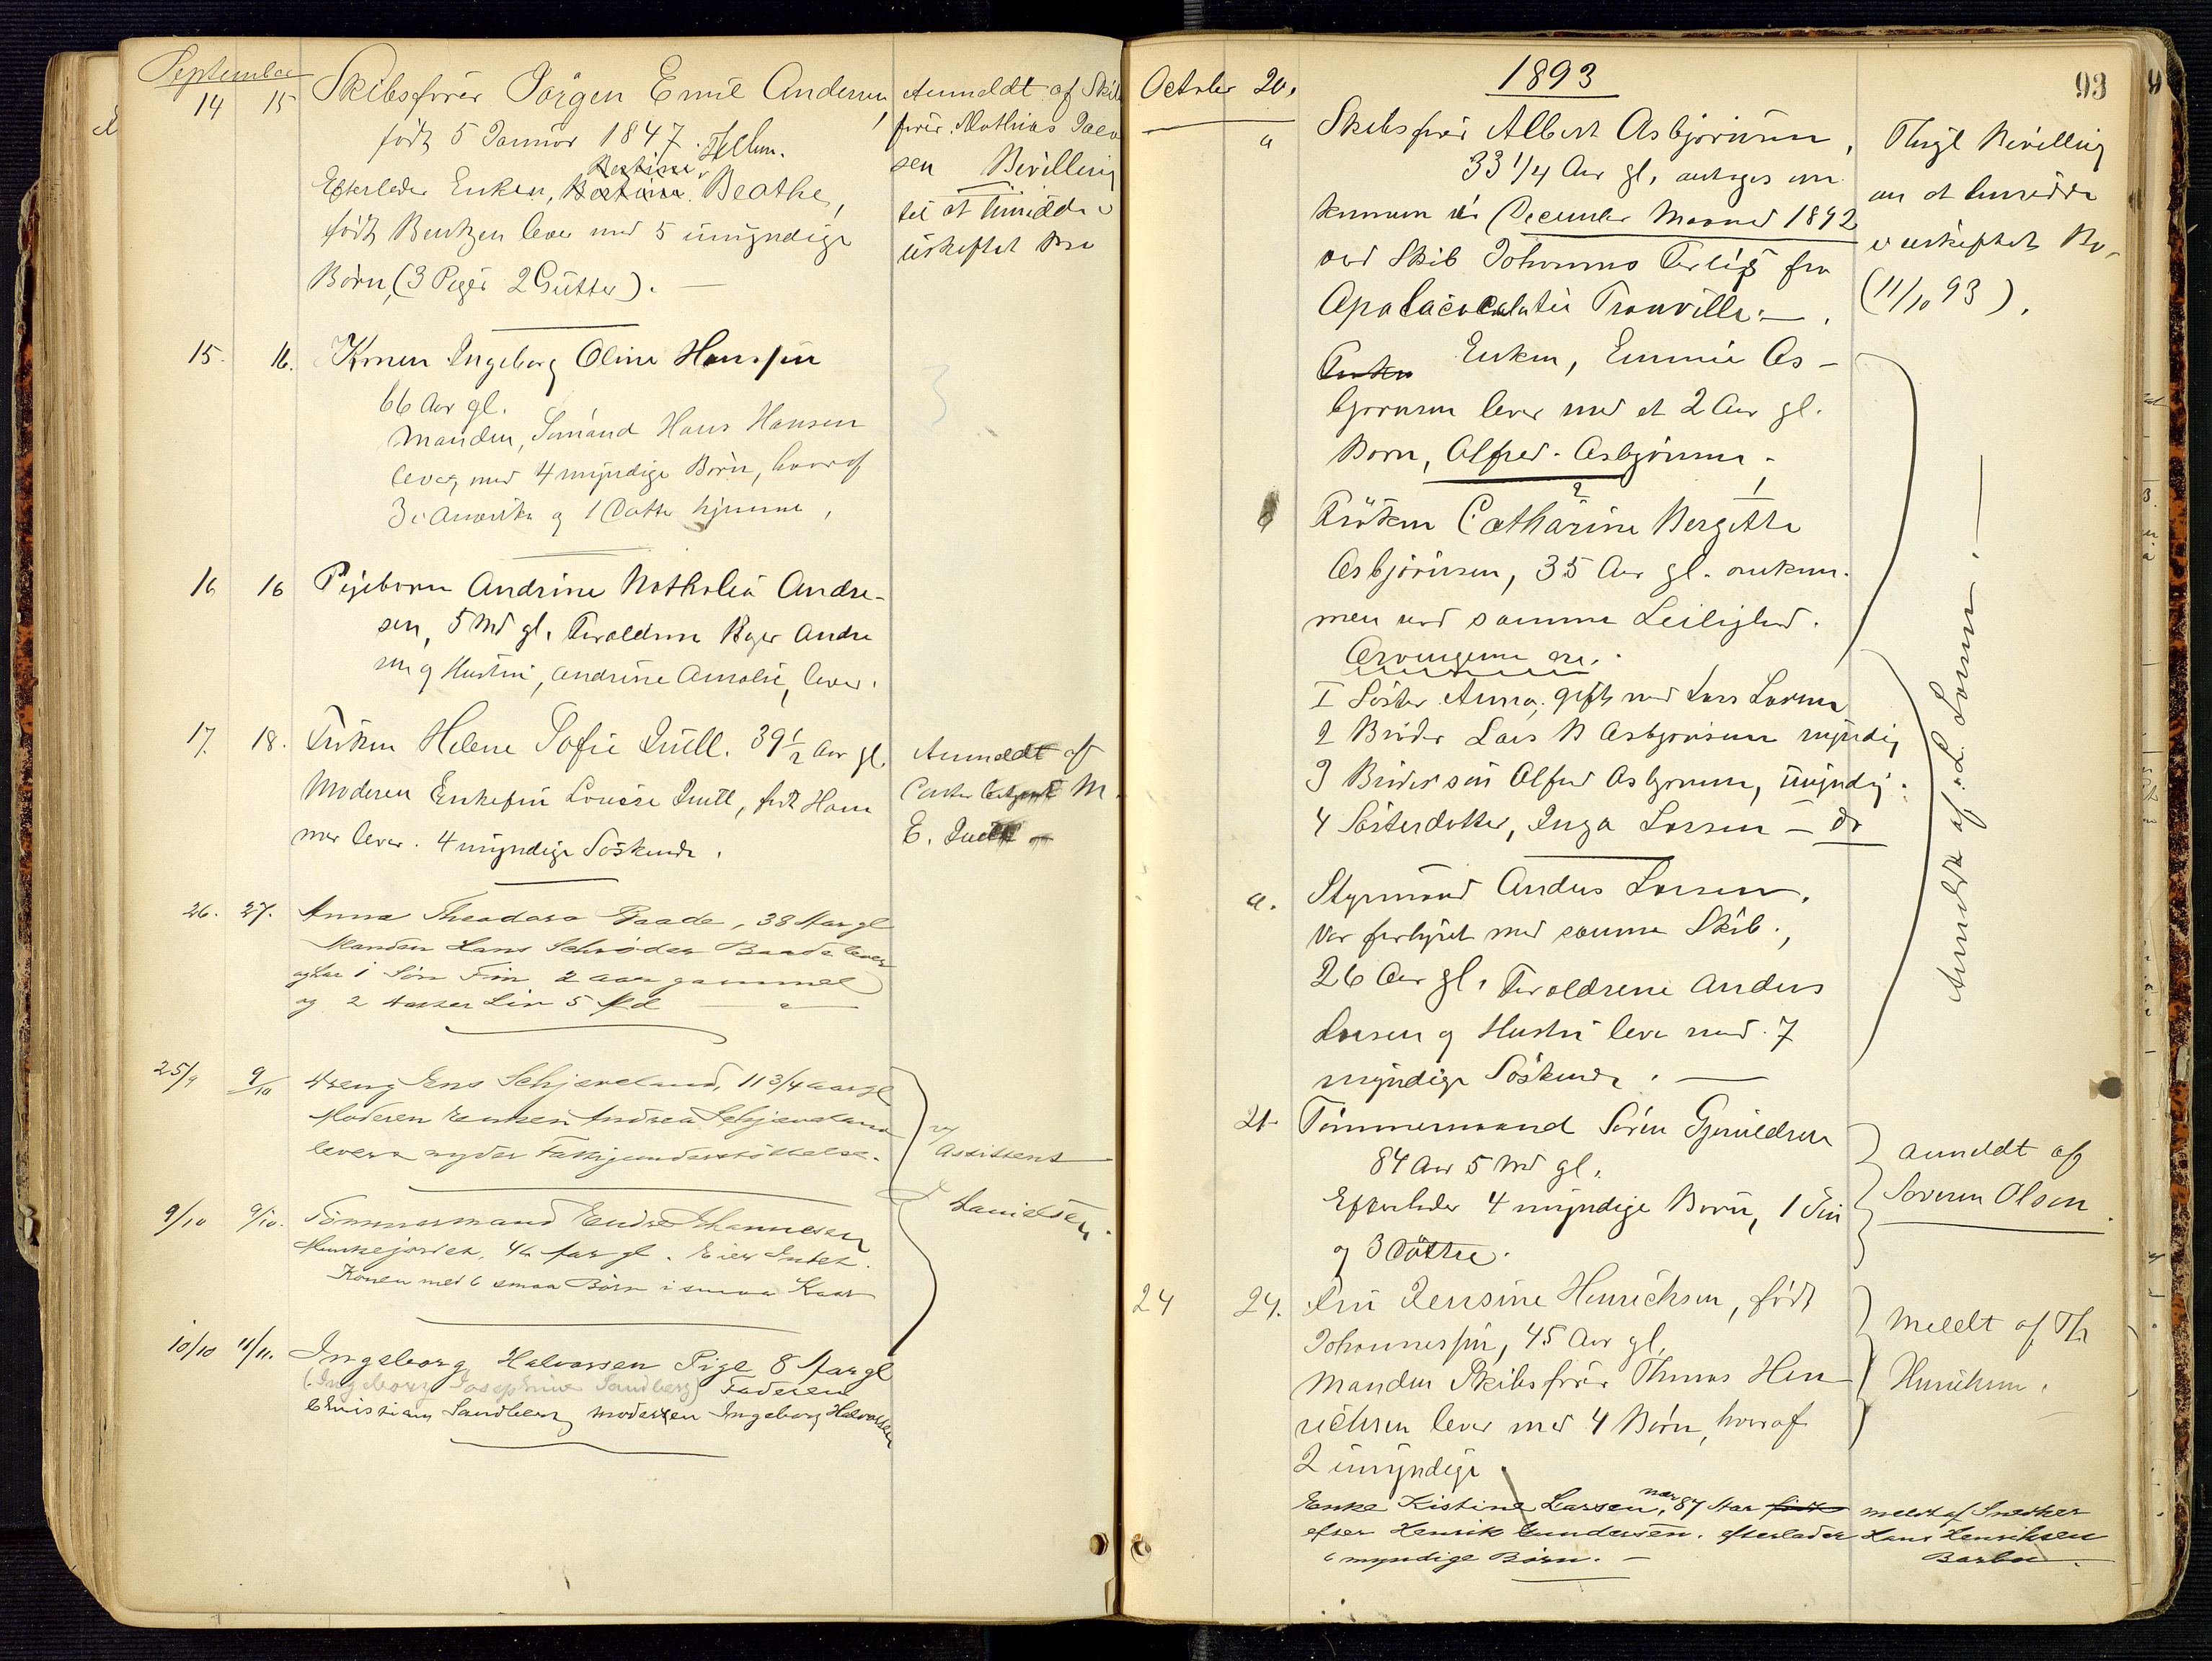 September
14 15 Skibsfører Jørgen Emil Andersen,
født 5 Januar 1847.
Efterlader Enken, Beathe,
født Bentzen lever med 5 umyndige
Børn, (3 Piger 2 Gutter). —
Anmeldt af Skibs
fører Mathias Jacob
sen Bevilling
til at hensidde i
uskiftet Bo
15. 16. Konen Ingeborg Oline Hanssen
66 Aar gl.
Manden, Sømand Hans Hansen
lever med 4 myndige Børn, hvoraf
3 i Amerika og 1 Datter hjemme,
16 16 Pigebarn Andrine Nathalia Andre-
sen, 5 Md gl. Forældrene Andre
sen og Hustru, Andrine Amalie, lever.
17. 18. Frøken Helene Sofie Quell. 39 1/2 Aar gl.
Moderen Enkefru Lovise Quell, født Ham
mer lever. 4 myndige Søskende.
Anmeldt af
M.
E. Quell
26. 27. Anna Theodora Baade, 38 Aar gl
Manden Hans Schrøder Baade lever
og har 1 Søn Fin 2 aar gammel
og 2 Datter Liv 5 Md
25/9 9/10 Dreng Jens Schjeveland, 11 3/4 aar gl
Moderen Enken Andrea Schjeveland
lever nyder Fattigunderstøttelse.
Assistent
Danielsen.
9/10 9/10. Tømmermand Endre Johannesen
Munkejordet, 46 Aar gl. Eier Intet.
Konen med 6 smaa Børn i smaa Kaar
10/10 11/11. Ingeborg Halvorsen Pige 8 Aar gl
(Ingeborg Josephine Sandberg) Faderen
Christian Sandberg moderen Ingeborg Halvorsen
1893
93
October 20.
a Skibsfører Albert Asbjørnsen,
33 1/4 Aar gl, antages om
kommen i December Maaned 1892
ved Skib Johannes fra
Apalacicola til Trouville. —
Enken, Emmie As-
bjørnsen lever med et 2 Aar gl.
Barn, Alfred Asbjørnsen.
Thvgl Bevilling
om at hensidde
i uskiftet Bo,
(11/10 93).
Frøken Catharine Bergitte
Asbjørnsen, 35 Aar gl. omkom-
men ved samme Leilighed.
Arvingerne ere.
I Søster Anna, gift med Lars Larsen
2 Broder Lars B Asbjørnsen myndig
3 Brodersøn Alfred Asbjørnsen, umyndig.
4 Søsterdatter, Inga Larsen — do
a. Styrmand Anders Larsen,
var forhyret med samme Skib.,
26 Aar gl. Forældrene Anders
Larsen og Hustru lever med 7
myndige Søskende. —
Anmeldt af: L. Larsen. —
21. Tømmermand Søren Gjeruldsen
84 Aar 5 Md gl.
Efterlader 4 myndige Børn, 1 Søn
og 3 Døttre.
Anmeldt af
Severin Olsen.
24 24. Fru Jensine Henrichsen, født
Johannessen, 45 Aar gl,
Manden Skibsfører Thomas Hen
richsen lever med 4 Børn, hvoraf
2 umyndige.
Meldt af Th
Henrichsen.
Enke Kistine Larsen, nær 87 Aar født
efter Henrik Gundersen. efterlader
6 myndige Børn. —
meldt af Snedker
Hans Henriksen
Barbu.